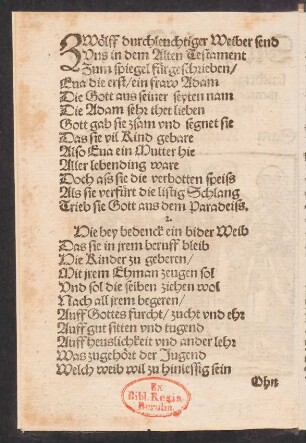 ZWölff durchleuchtiger Weiber send
Vns in dem Alten Testament
Zum spiegel fürgeschrieben/
Eua die erst/ein fraw Adam
Die Gott aus seiner seyten nam
Die Adam sehr thet lieben
Gott gab sie zsam vnd segnet sie
Das sie vil Kind gebare
Also Eua ein Mutter hie
Aller lebending ware
Doch aß sie die verbotten speiß
Als sie verfürt die listig Schlang
Trieb sie Gott aus dem Paradeiß.
2.
Hie bey bedenck ein bider Weib
Das sie in jrem beruff bleib
Die Kinder zu geberen/
Mit jrem Ehman zeugen sol
Vnd sol die selben ziehen wol
Nach all jrem begeren/
Auff Gottes furcht/ zucht vnd ehr
Auff gut sitten vnd tugend
Auff heuslichkeit vnd ander lehr
Was zugehört der Jugend
Welch weib wil zu hinlessig sein
Ohn
Ex
Bibl. Regia
Berolin.